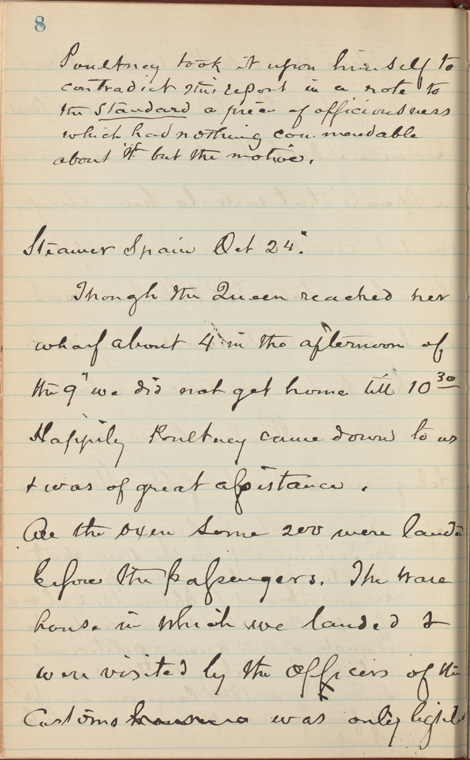 8
Poultney took it upon himself to
contradict this report in a note to
the Standard a piece of officiousness
which had nothing commendable
about it but the motive.
Steamer Spain Oct 24".
Though the Queen reached her
wharf about 4 in the afternoon of
the 9" we did not get home till 10 30
Happily Poultney came down to us
& was of great assistance.
All the Oxen some 200 were lande
before the passengers. The ware
house in which we landed &
were visited by the Officers of the
Customs was only light